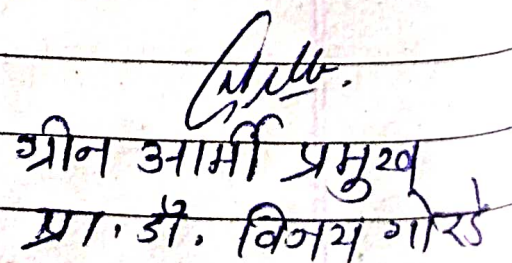 ग्रीन आर्मी प्रमुख
प्रा. डॉ. विजय गोरडे